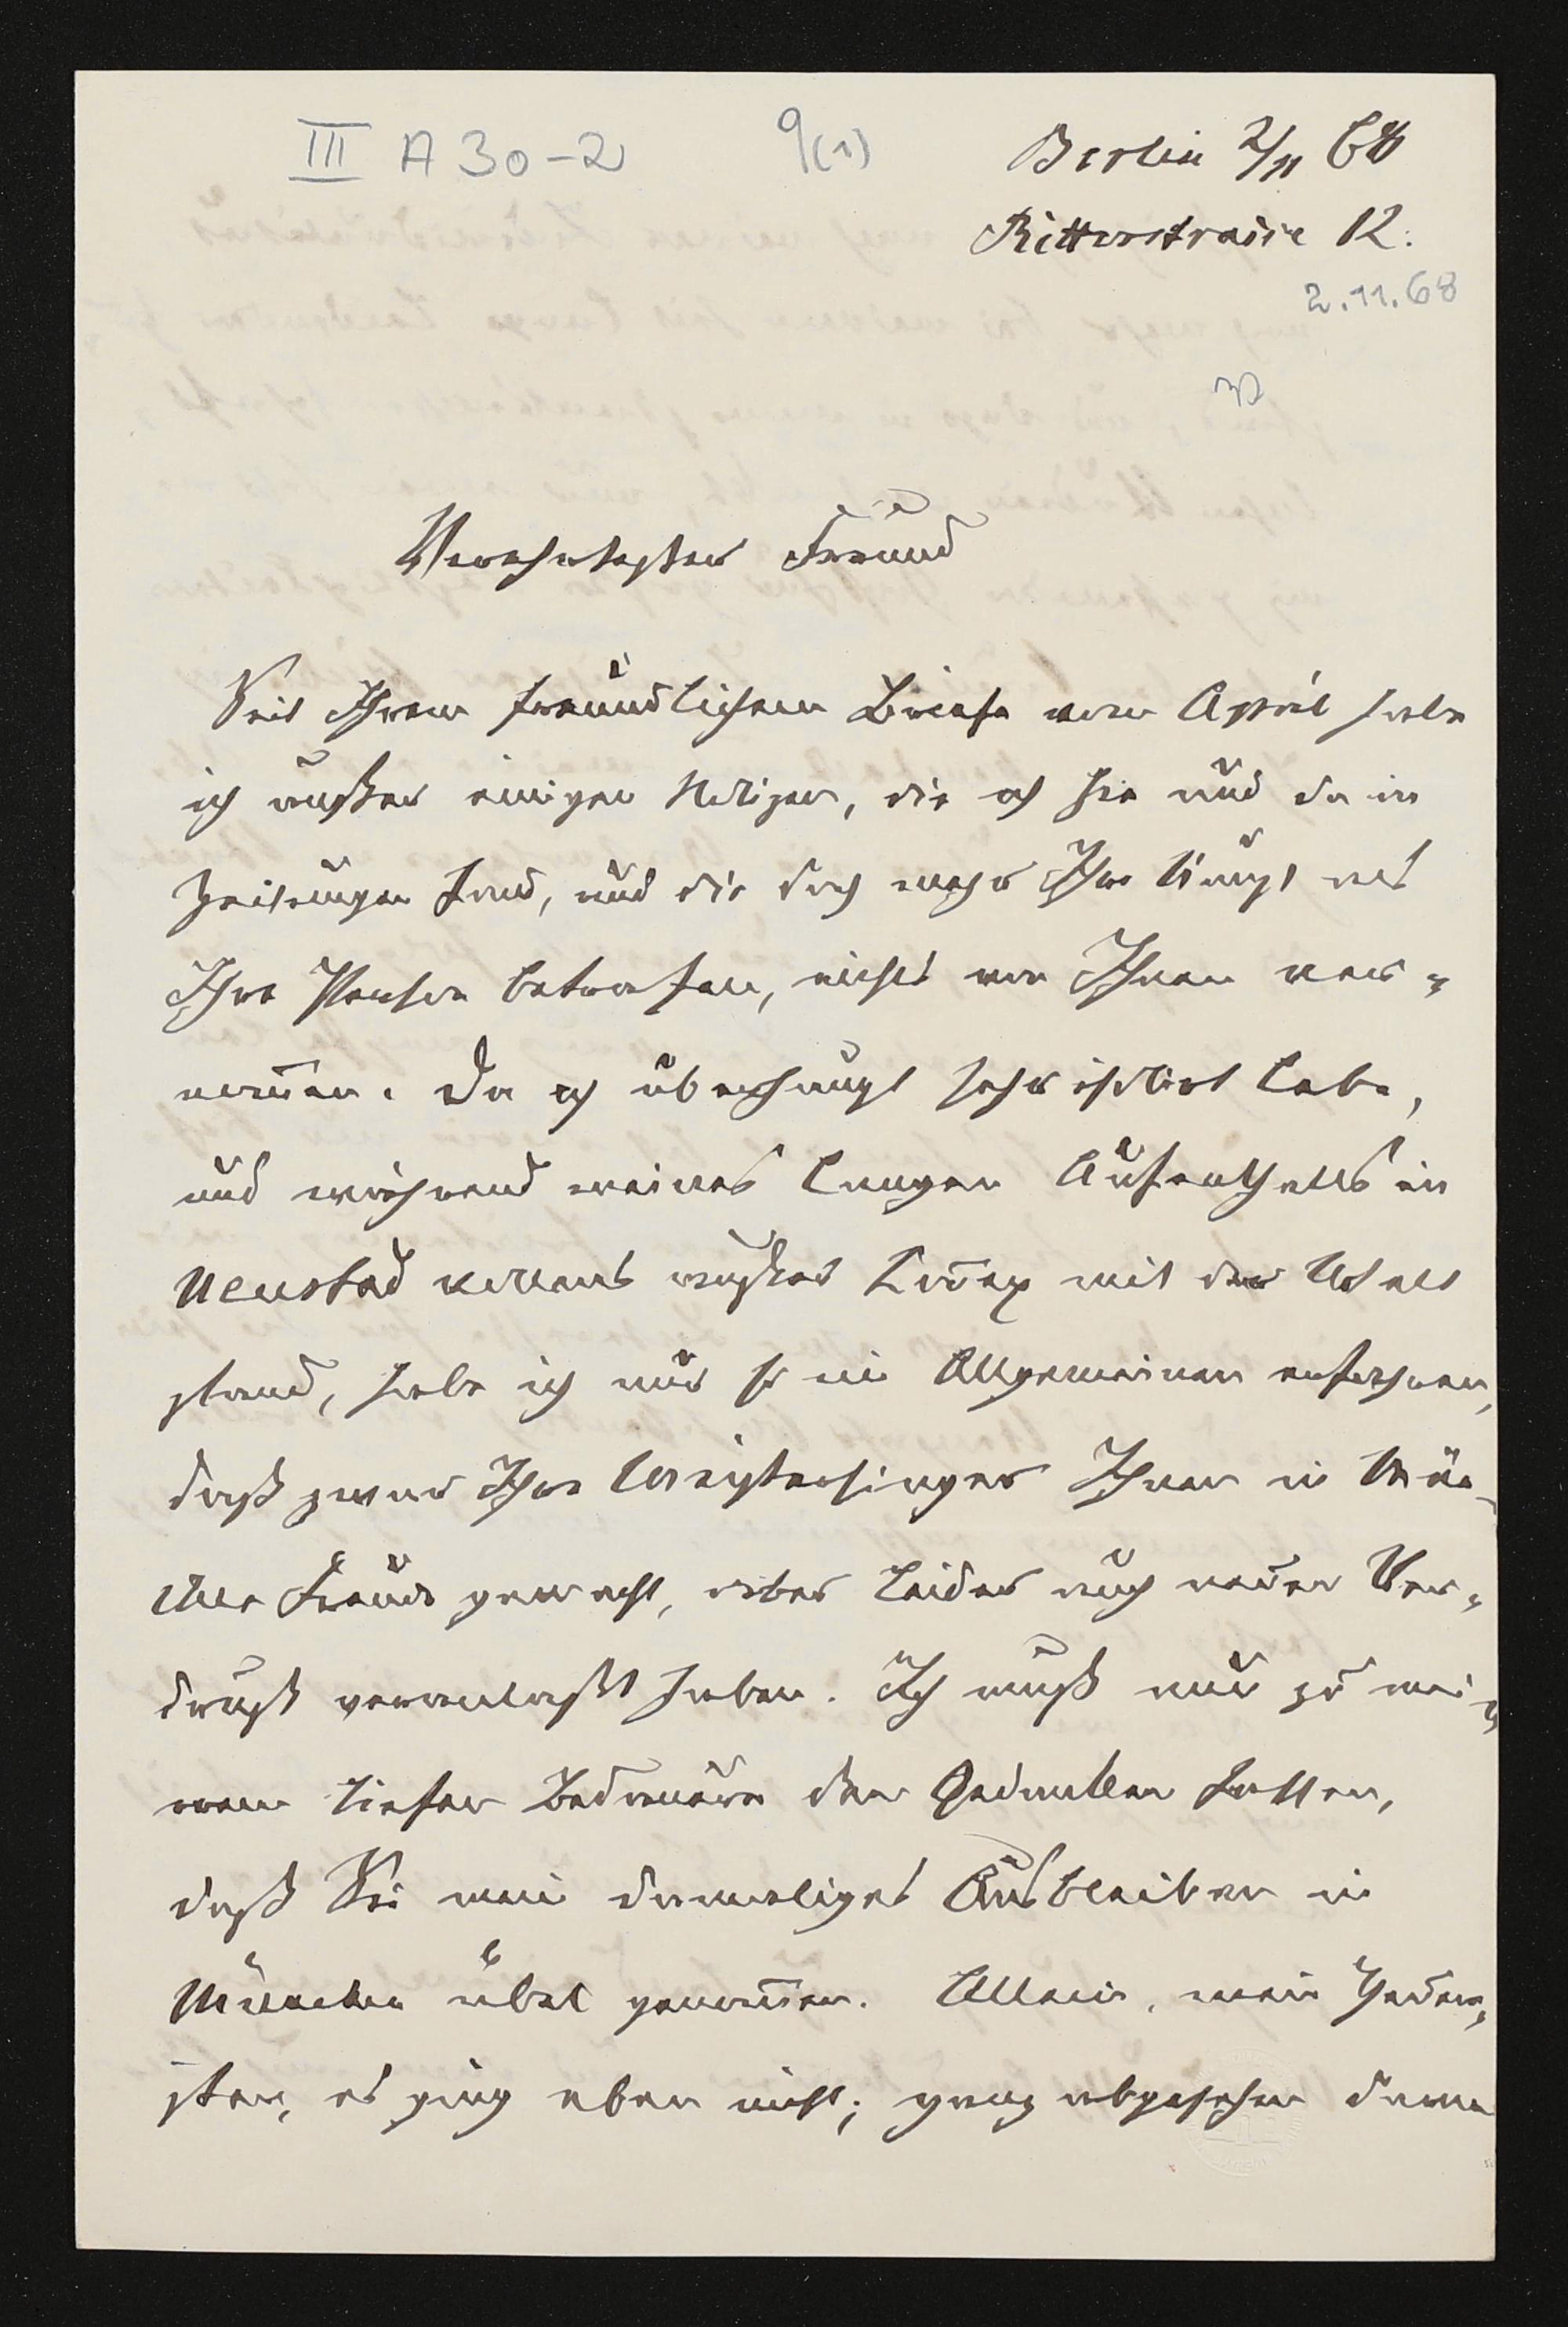 III A 30-2 9(1) Berlin 2/11 68
Ritterstrasse 12.
2.11.68
Verehrtester Freund
Seit Ihrem freundlichen Briefe vom April habe
ich außer einigen Notizen, die ich hie und da in
Zeitungen fand, und die doch mehr Ihre Kunst als
Ihre Person betrafen, nichts von Ihnen ver-
nom̄en. Da ich überhaupt sehr isolirt lebe,
und während meines langen Aufenthalts in
Neustad vollends außer Connex mit der Welt
stand, habe ich nur so im Allgemeinen erfahren,
daß zwar Ihre Meistersinger Ihnen in Mün-
chen Freude gemacht, aber leider auch neuen Ver-
druß veranlaßt haben. Ich muß nun zu mei-
nem tiefen Bedauern den Gedanken fassen,
daß Sie mein damaliges Ausbleiben in
München übel genom̄en. Allein, mein Theuer-
ster, es ging eben nicht; ganz abgesehen davon